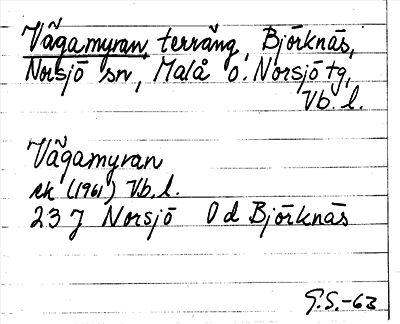 Vågamyran, terräng, Björknäs,
Norsjö sn, Malå o. Norsjö tg,
Vb. l.
Vågamyran
ek (1961) Vb. l.
23 J Norsjö 0 d Björknäs
G.S.-63